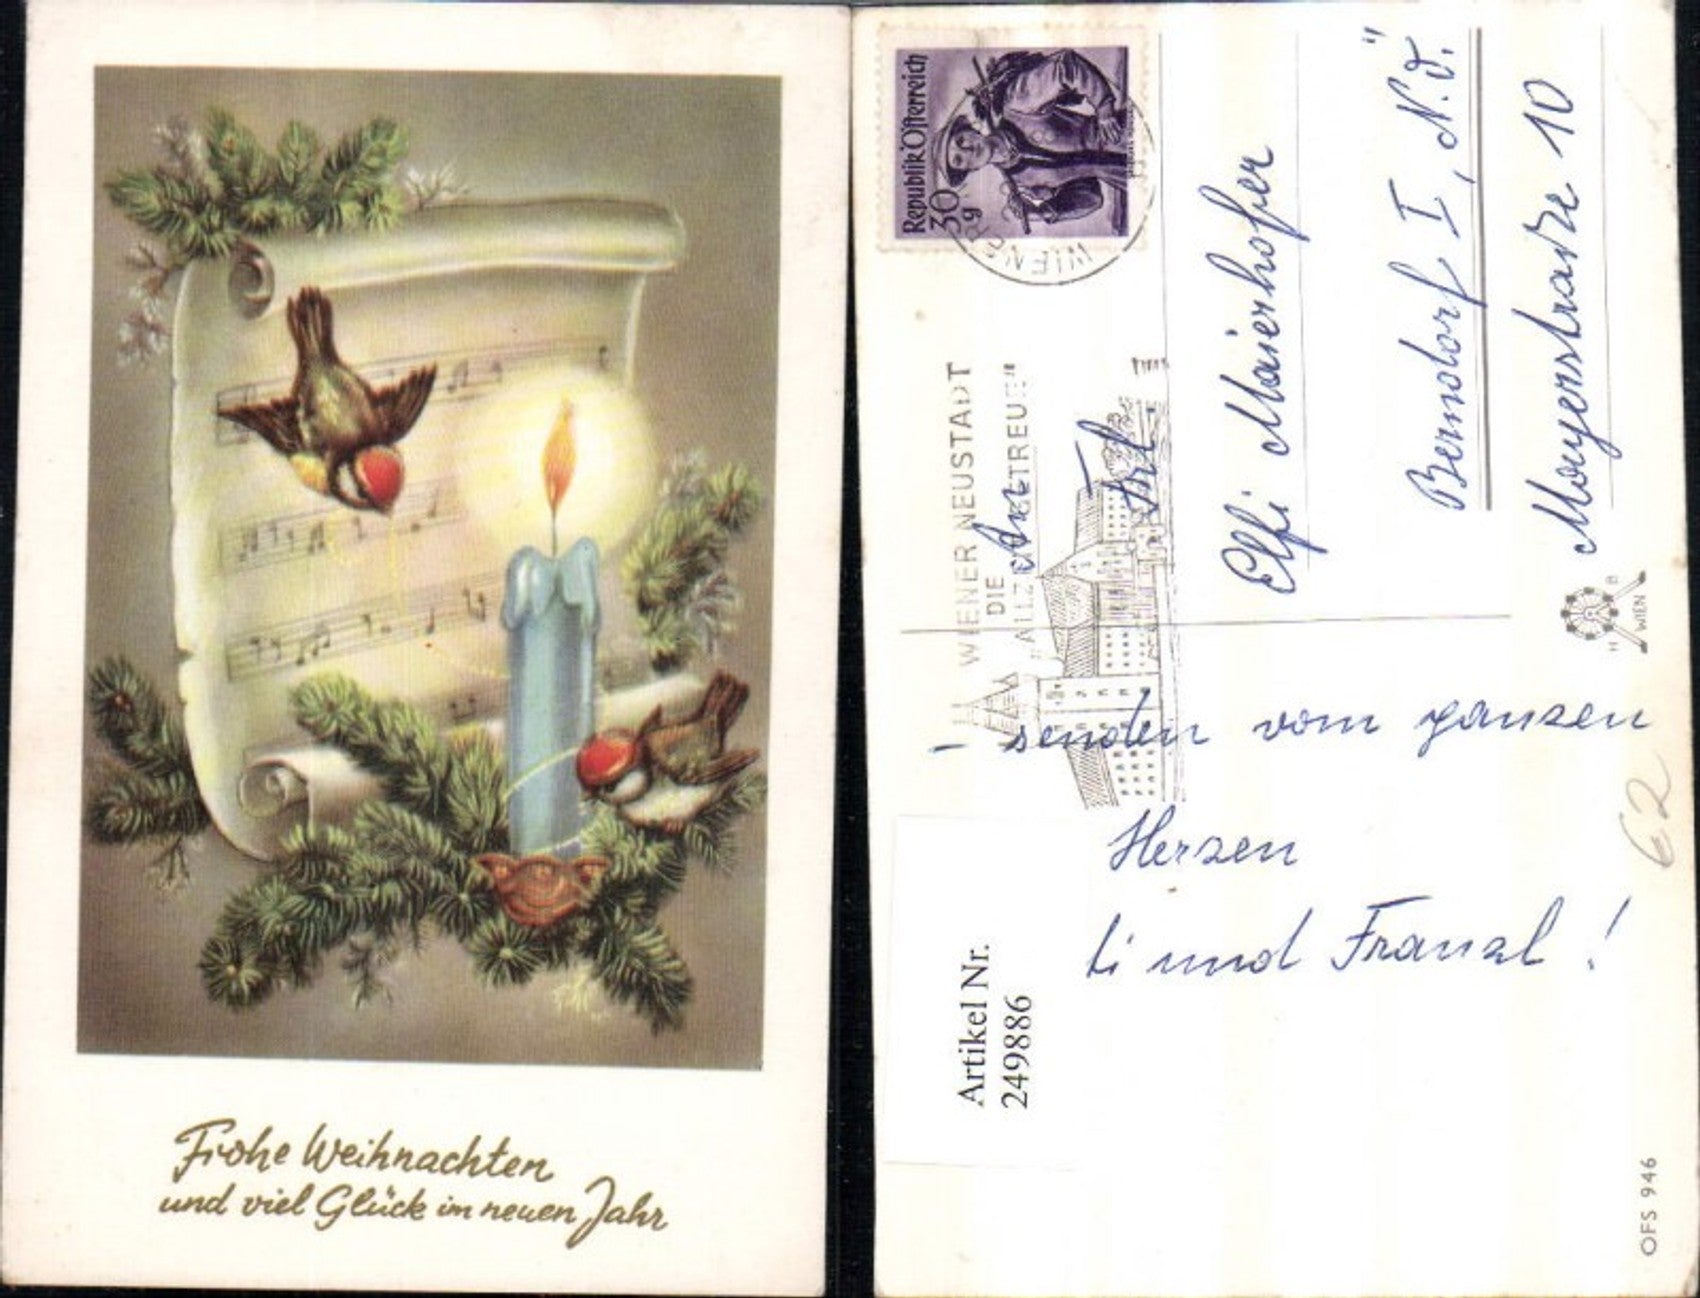 Frohe Weihnachten
und viel Glück im neuen Jahr
Republik Österreich
30 g
WIENER NEUSTADT
DIE
"ALLZEITGETREUE"
Frl.
Elfi Maierhofer
Berndorf I, N.Ö.
Mayerstraße 10
H B
WIEN
- senden vom ganzen
Herzen
und Franzl!
62
Artikel Nr.
249886
OFS 946